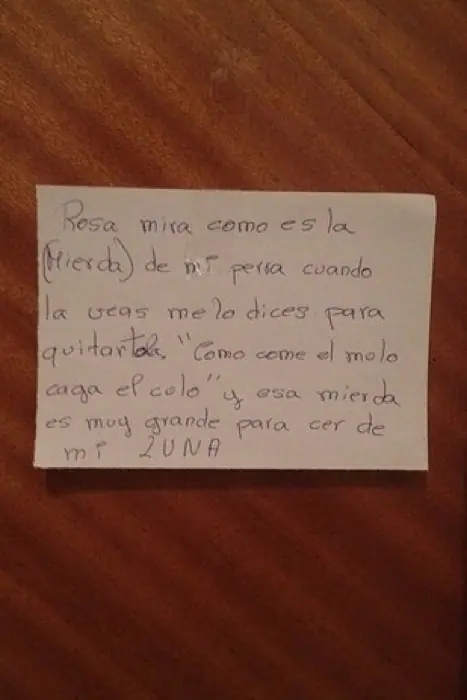 Rosa mira como es la
(Mierda) de mi perra cuando
la veas me lo dices para
quitar "Como come el molo
caga el colo" y esa mierda
es muy grande para cer de
mi LUNA